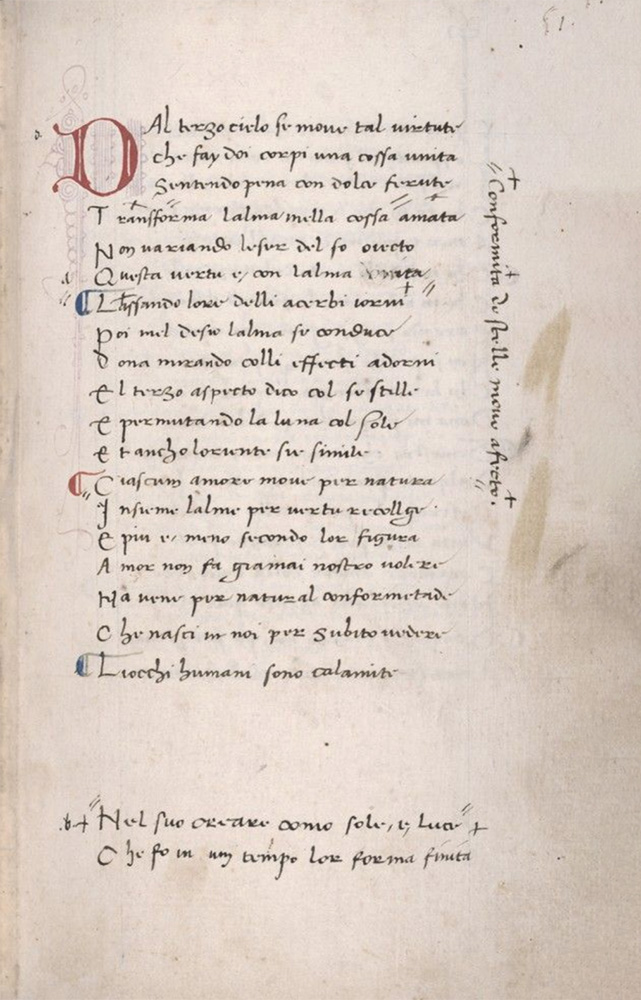 51.
DAl terzo cielo se move tal virtute
che fay doi corpi una cossa unita
Sentendo pena con dolce ferute
Transforma lalma nella cossa amata
Non variando leser del so oiecto
Questa vertu e, con lalma
Lassando lore delli acerbi iorni
Poi nel desio lalma se conduce
Dona mirando colli effecti adorni
El terzo aspecto dico col se stille
E permutando la luna col sole
E t ancho loriente sie simile
Ciascun amore move per natura
Insieme lalme per vertu recollge
E piu e, meno secondo lor figura
Amor non fa giamai nostro volere
Ma vene per natural conformetade
Che nasci in noi per subito vedere
Liocchi humani sono calamite
Conformita de stelle move afecto.
.b. + Nel suo creare como sole, e, luce +
Che fo in un tempo lor forma finita